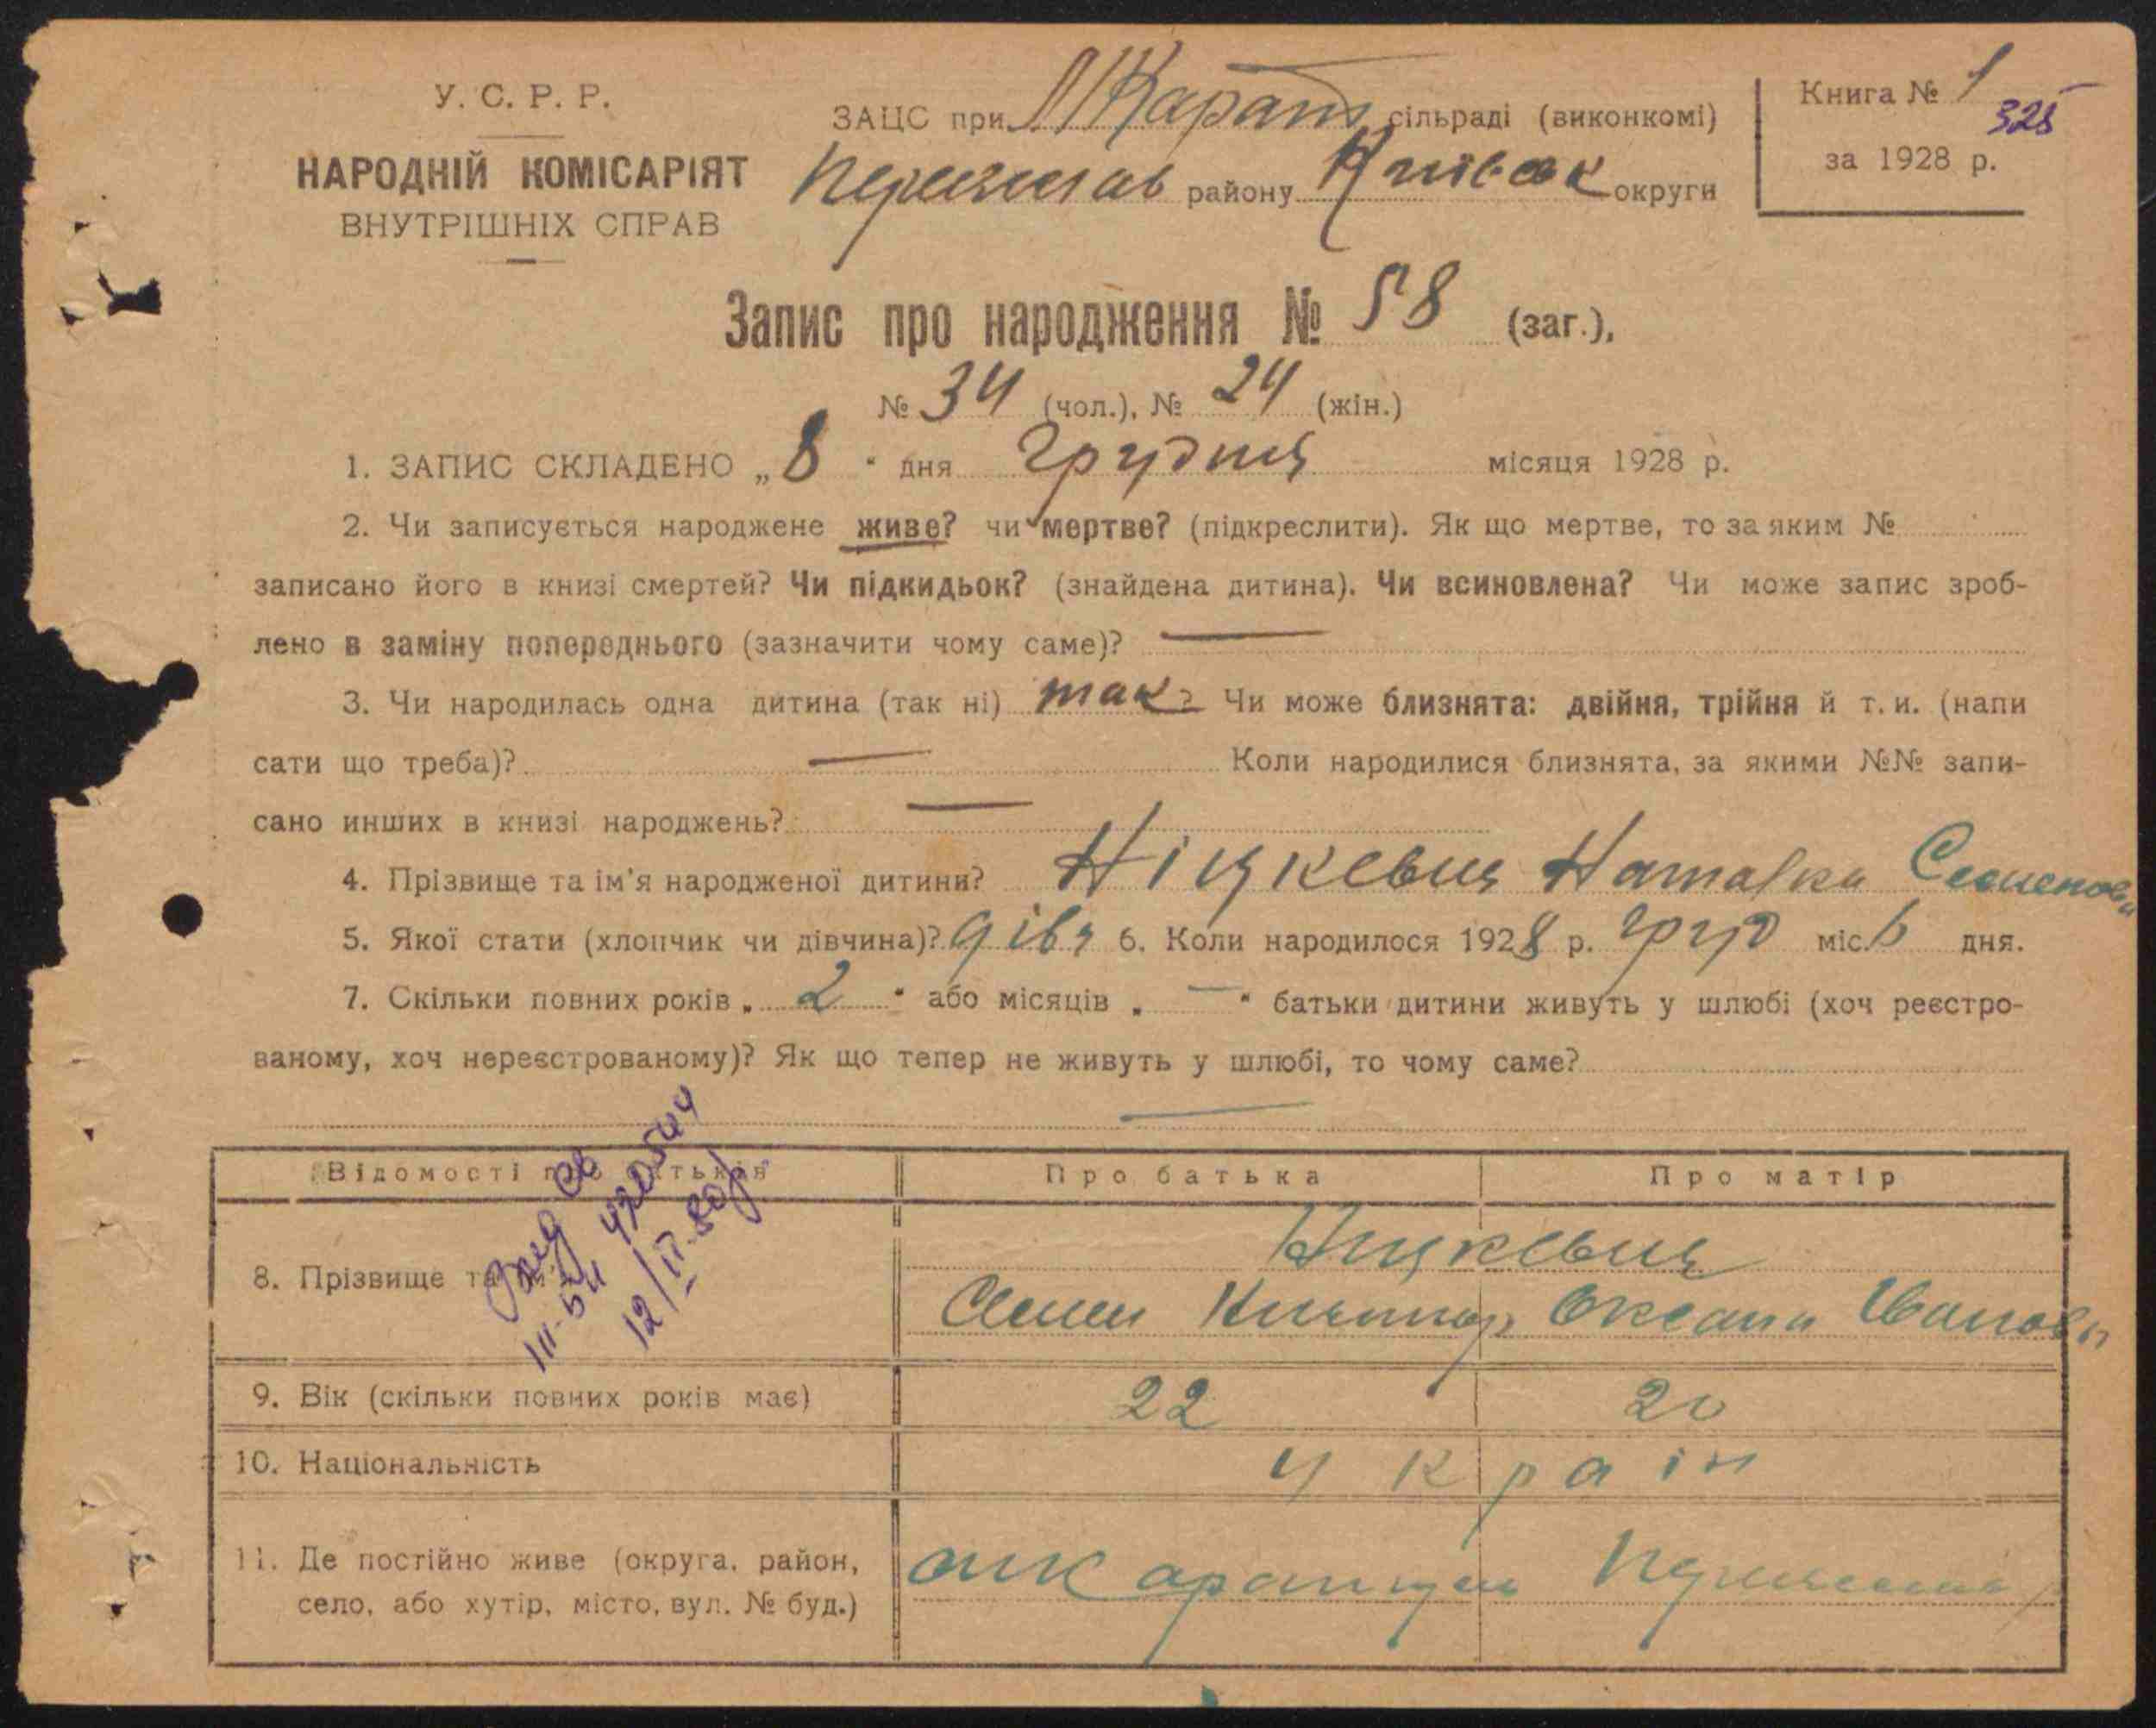 У. С. Р. Р.
НАРОДНІЙ КОМІСАРІЯТ
ВНУТРІШНІХ СПРАВ
ЗАЦС при М Карат сільраді (виконкомі)
району округи
Книга № 1
325
за 1928 р.
Запис про народження № 58 (заг.),
№ 34 (чол.), № 24 (жін.)
1. ЗАПИС СКЛАДЕНО „ 8 " дня Грудня місяця 1928 р.
2. Чи записується народжене живе? чи мертве? (підкреслити). Як що мертве, то за яким №
записано його в книзі смертей? Чи підкидьок? (знайдена дитина). Чи всиновлена? Чи може запис зроб-
лено в заміну попереднього (зазначити чому саме)? —
3. Чи народилась одна дитина (так ні) так ? Чи може близнята: двійня, трійня й т. и. (напи
сати що треба)? — Коли народилися близнята, за якими №№ запи-
сано инших в книзі народжень? —
4. Прізвище та ім'я народженої дитини? Ніцкевич Наталка Семенов
5. Якої стати (хлопчик чи дівчина)? дівч 6. Коли народилося 1928 р. груд міс. 6 дня.
7. Скільки повних років „ 2 " або місяців „ — " батьки дитини живуть у шлюбі (хоч реєстро-
ваному, хоч нереєстрованому)? Як що тепер не живуть у шлюбі, то чому саме?
—
Відомості Про батька Про матір
8. Прізвище Ницкевич
Семен Оксана Іванов
9. Вік (скільки повних років має) 22 20
10. Національність україн
11. Де постійно живе (округа, район,
село, або хутір, місто, вул. № буд.)